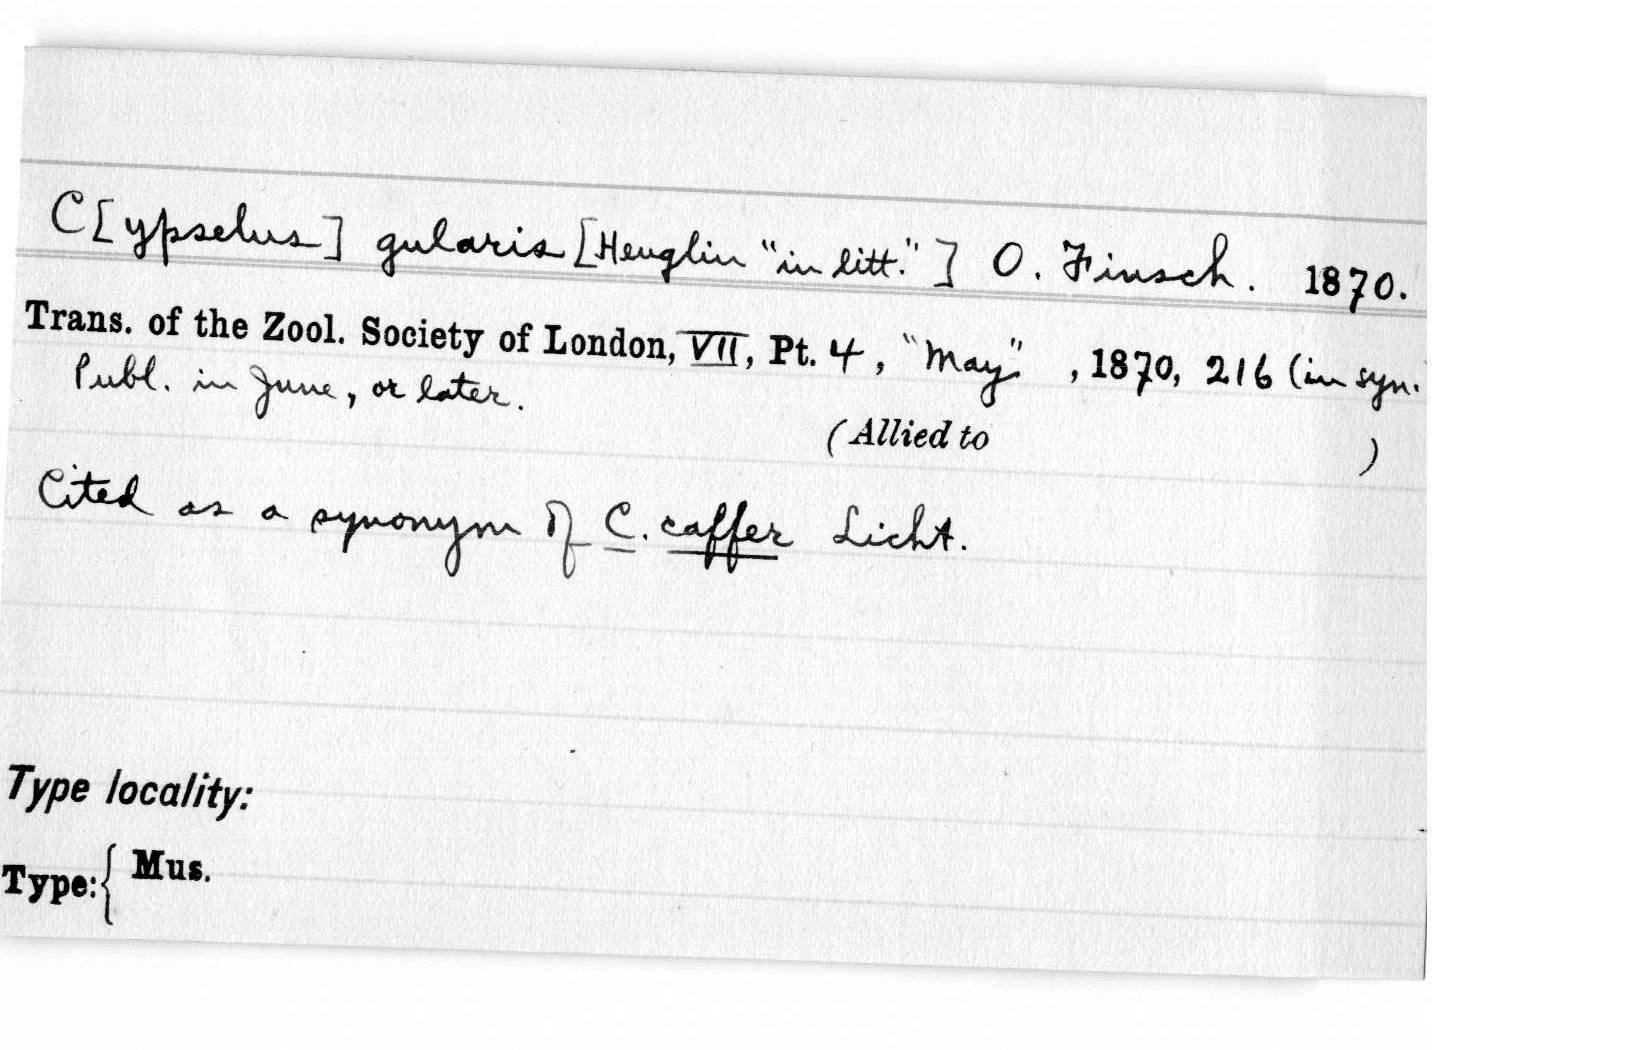 C[ypselus] gularis [Heuglin "in litt."] O. Finsch. 1870.
Trans. of the Zool. Society of London, VII, Pt. 4, "May", 1870, 216 (in syn.
Publ. in June, or later.
(Allied to )
Cited as a synonym of C. caffer Licht.
Type locality:
Type: { Mus.